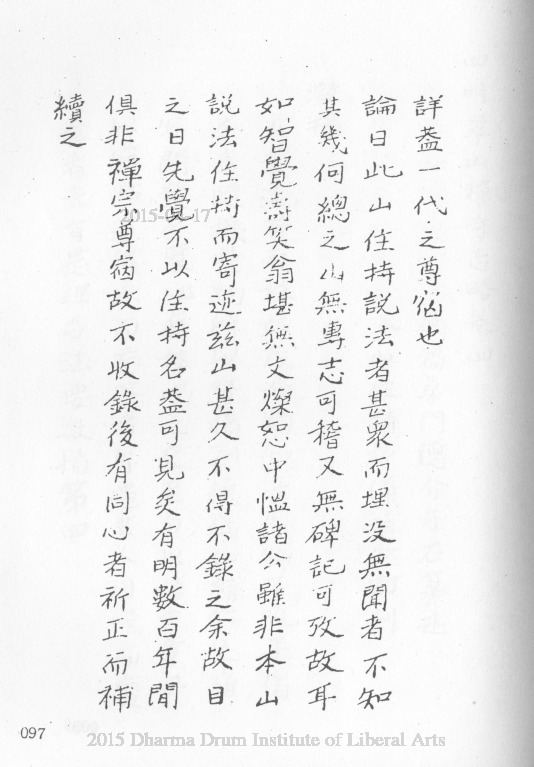 詳葢一代之尊宿也
論曰此山住持説法者甚衆而埋没無聞者不知
其幾何總之山無專志可稽又無碑記可攷故耳
如智覺壽笑翁堪無文燦恕中愠諸公雖非本山
説法住持而寄迹兹山甚久不得不錄之余故目
之曰先覺不以住持名葢可見矣有明數百年間
俱非禪宗尊宿故不收錄後有同心者祈正而補
續之
2015-03-17
097
2015 Dharma Drum Institute of Liberal Arts